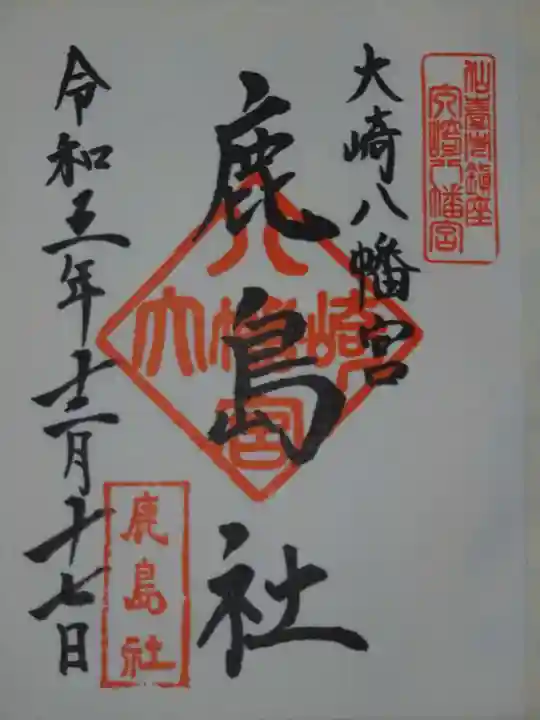 仙臺总鎮座
大崎八幡宮
大崎八幡宮
鹿島社
八
大幡崎
宮
鹿島社
令和五年十二月十七日